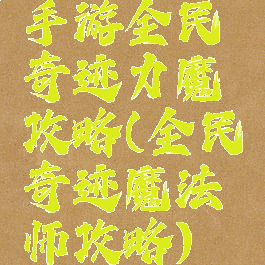 手游全民
奇迹力魔
攻略(全民
奇迹魔法
师攻略)